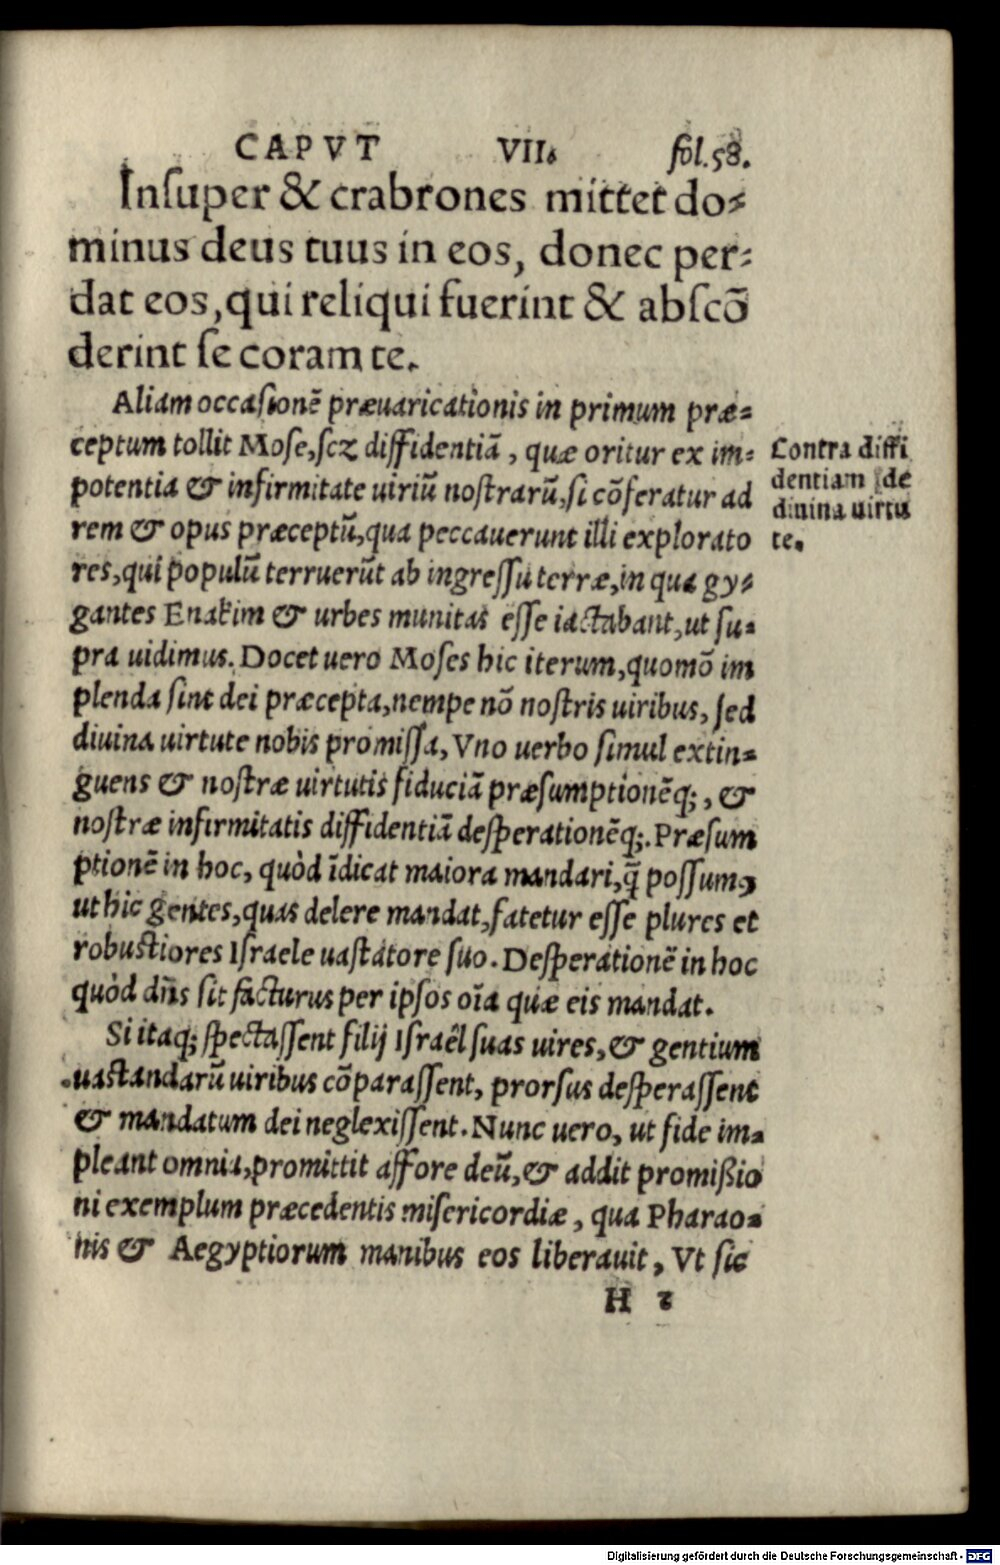 CAPVT VII. fol.58.
Inſuper & crabrones mittet do⸗
minus deus tuus in eos, donec per⸗
dat eos, qui reliqui fuerint & abſcõ
derint ſe coram te.
Aliam occaſionẽ præuaricationis in primum præ⸗
ceptum tollit Moſe, ſcz diffidentiã, quæ oritur ex im⸗
potentia & infirmitate uiriũ noſtrarũ, ſi cõferatur ad
rem & opus præceptũ, qua peccauerunt illi explorato
res, qui populũ terruerũt ab ingreſſu terræ, in qua gy⸗
gantes Enakim & urbes munitas eſſe iactabant, ut ſu⸗
pra uidimus. Docet uero Moſes hic iterum, quomõ im
plenda ſint dei præcepta, nempe nõ noſtris uiribus, ſed
diuina uirtute nobis promiſſa, Vno uerbo ſimul extin⸗
guens & noſtræ uirtutis fiduciã præſumptionẽq;, &
noſtræ infirmitatis diffidentiã deſperationẽq;. Præſum
ptionẽ in hoc, quòd ĩdicat maiora mandari, q̃ poſſumꝰ
ut hic gentes, quas delere mandat, fatetur eſſe plures et
robuſtiores Iſraele uaſtatore ſuo. Deſperationẽ in hoc
quòd dñs ſit facturus per ipſos oĩa quæ eis mandat.
Si itaq; ſpectaſſent filij Iſraêl ſuas uires, & gentium
uaſtandarũ uiribus cõparaſſent, prorſus deſperaſſent
& mandatum dei neglexiſſent. Nunc uero, ut fide im⸗
pleant omnia, promittit affore deũ, & addit promißio
ni exemplum præcedentis miſericordiæ, qua Pharao⸗
nis & Aegyptiorum manibus eos liberauit, Vt ſic
H 2
Contra diffi
dentiam de
diuina uirtu
te.
Digitalisierung gefördert durch die Deutsche Forschungsgemeinschaft - DFG